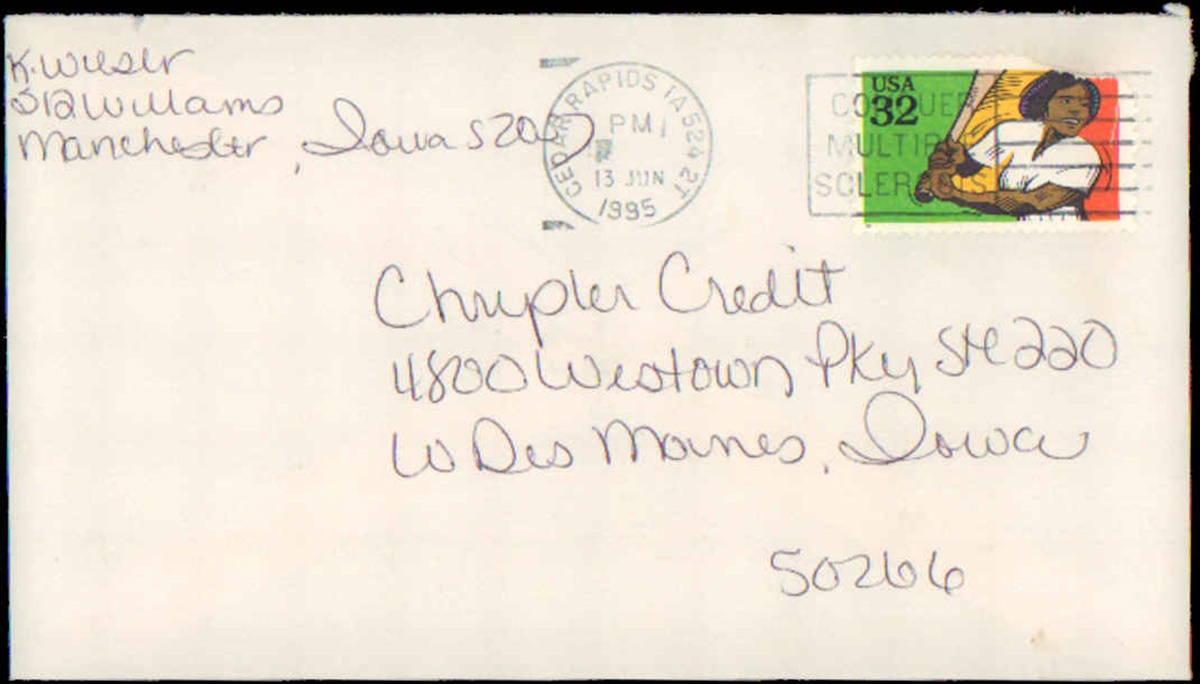 K. Wieser
512 Williams
Manchester, Iowa 52057
CEDAR RAPIDS IA 524 2T
PM
13 JUN
1995
USA
32
CONQUER
MULTIPLE
SCLEROSIS
Chrysler Credit
4800 Westown Pky Ste 220
W Des Moines, Iowa
50266